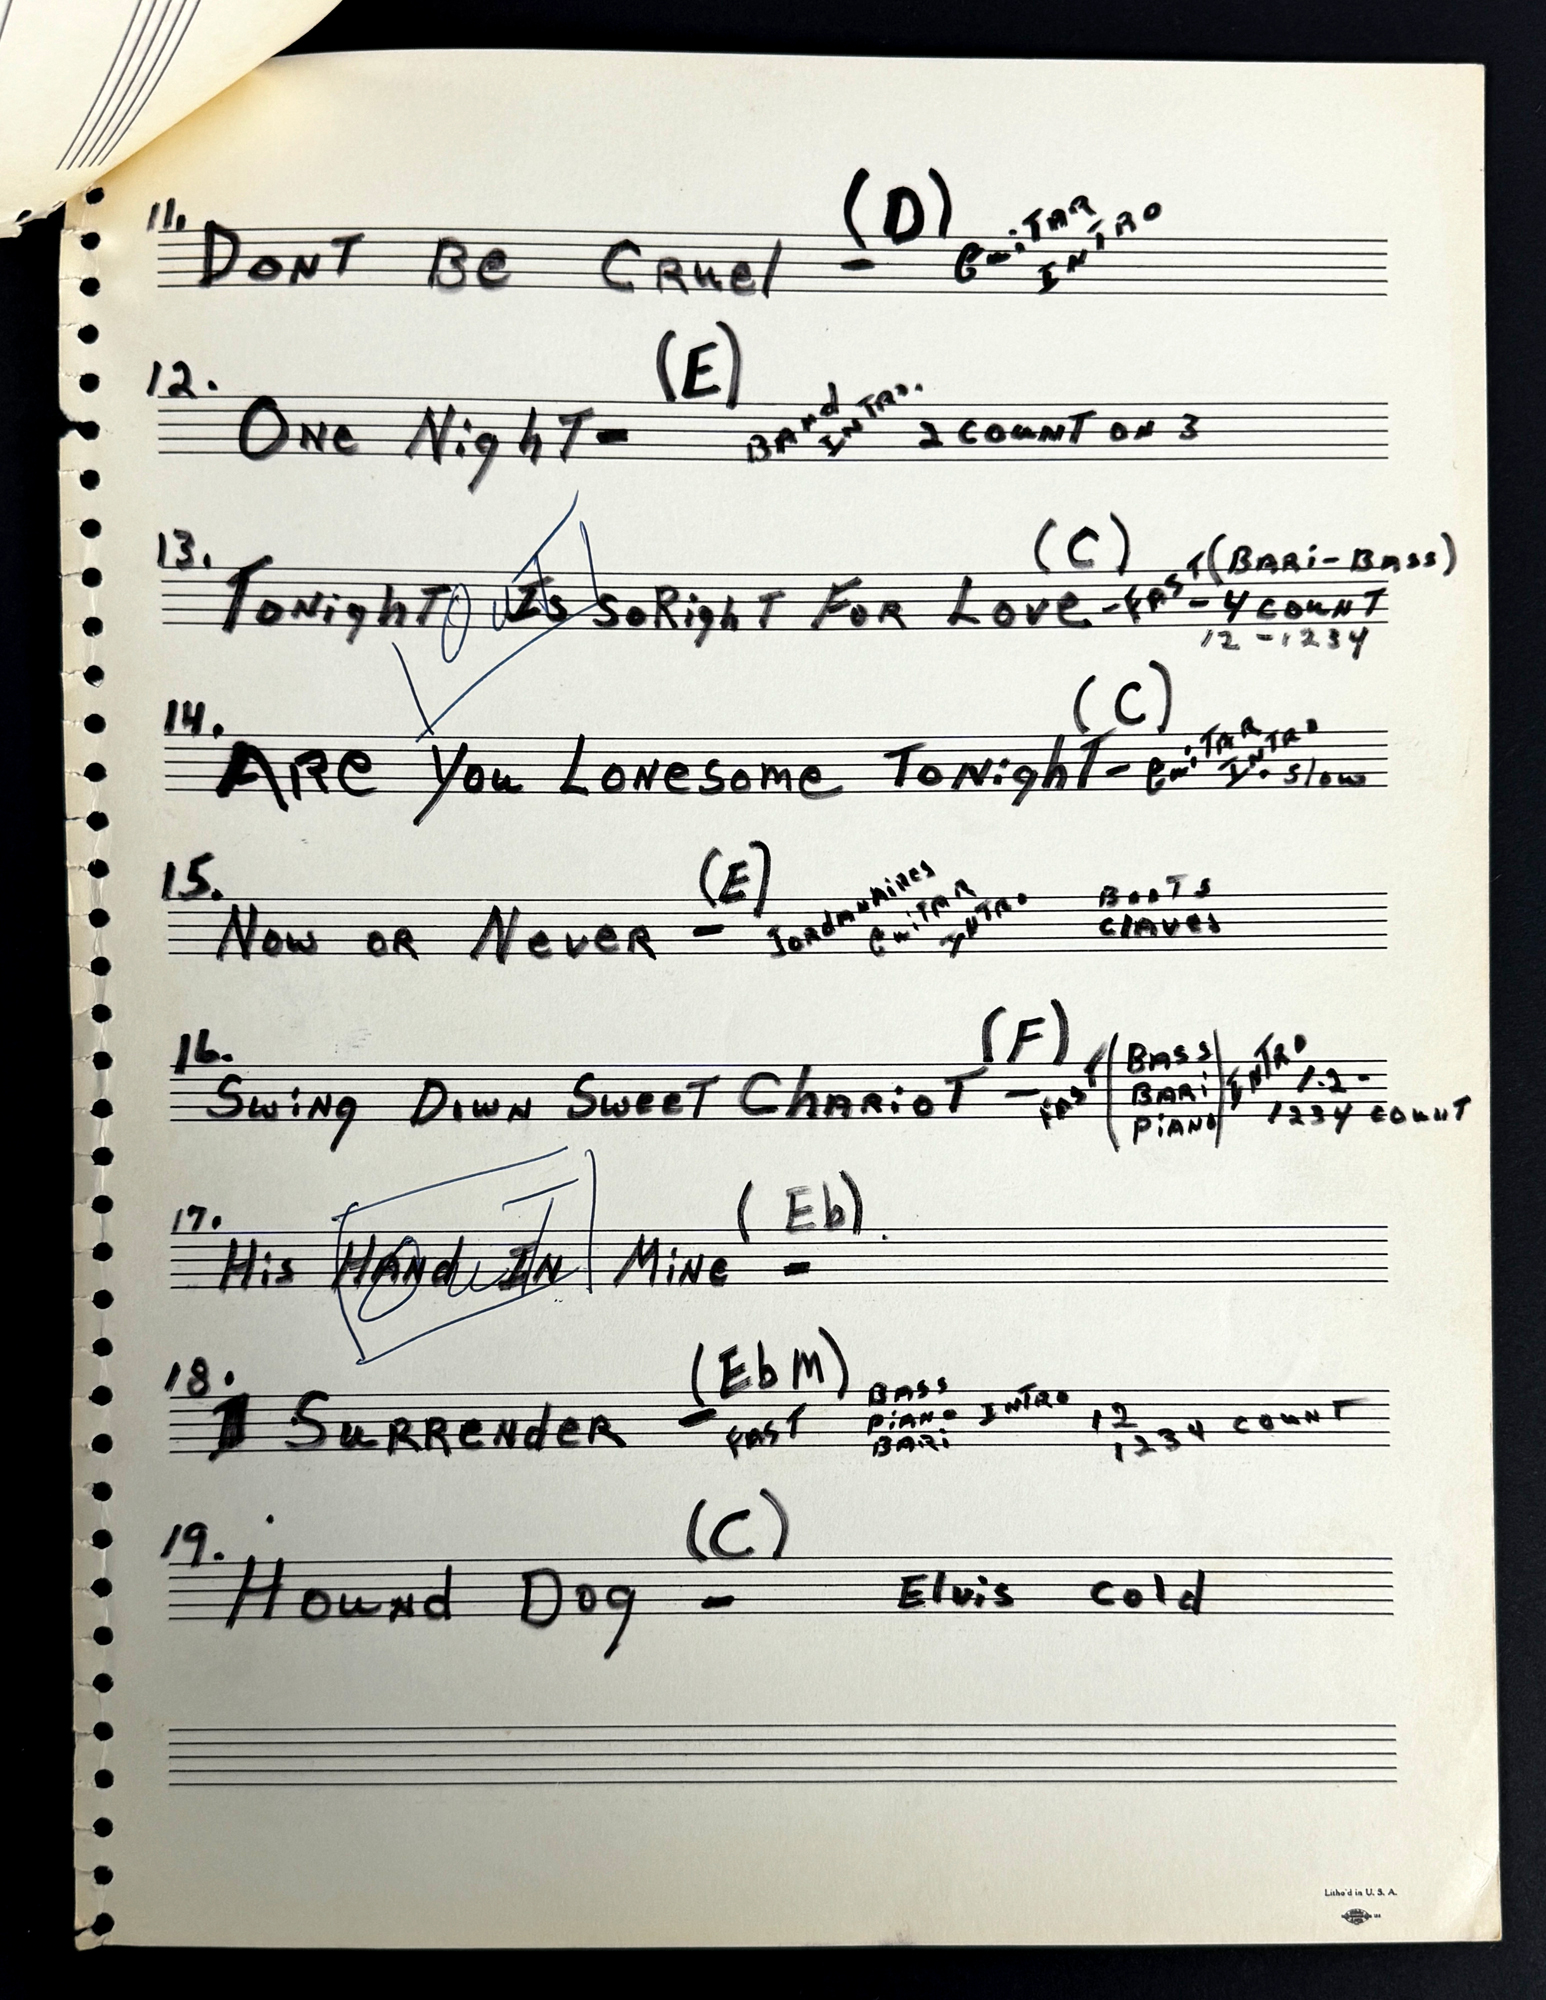 11.
DONT Be CRuel - (D) GuiTAR INTRO
12.
ONe NighT - (E) BANd INTRO. 2 COUNT ON 3
13.
TONighT Is So RighT FOR Love - (C) FAST (BARi-BASS)
- 4 COUNT
12 - 1234
OUT
14.
ARe You LONesome TONighT - (C) GuiTAR INTRO. Slow
15.
Now OR NeveR - (E) JORdANAiRes GuiTAR INTRO BooTs
ClAves
16.
SwiNg DowN SweeT ChARioT - (F) FAST (BASS
BARi
PiANO) INTRO 1.2 -
1234 COUNT
17.
His HANd IN MiNe - (Eb)
OUT
18.
I SuRReNdeR - (Eb M) FAST BASS
PiANO INTRO 12
BARi 1234 COUNT
19.
HouNd Dog - (C) Elvis Cold
Litho'd in U. S. A.